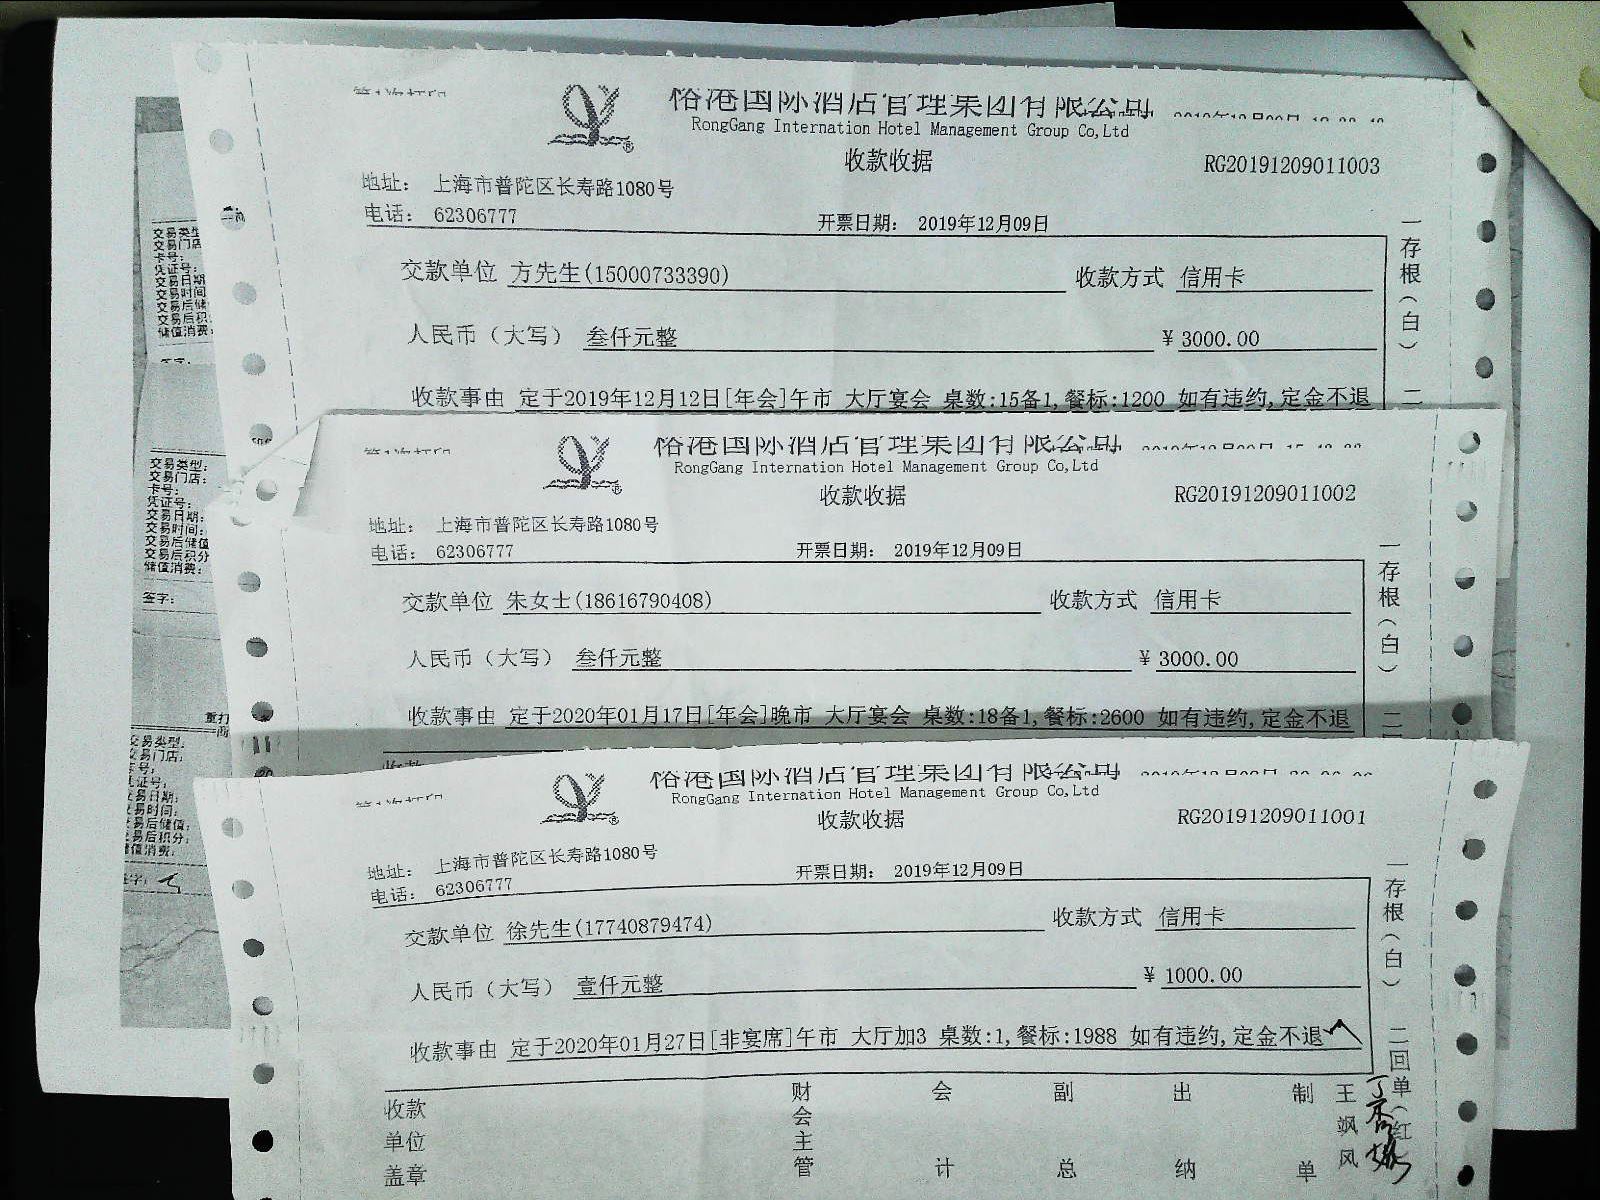 裕港国际酒店管理集团有限公司
RongGang Internation Hotel Management Group Co,Ltd
收款收据
RG20191209011003
地址： 上海市普陀区长寿路1080号
电话： 62306777
开票日期： 2019年12月09日
交款单位 方先生(15000733390) 收款方式 信用卡
人民币（大写） 叁仟元整 ¥ 3000.00
收款事由 定于2019年12月12日[年会]午市 大厅宴会 桌数:15备1,餐标:1200 如有违约,定金不退
一存根（白） 二
裕港国际酒店管理集团有限公司
RongGang Internation Hotel Management Group Co,Ltd
收款收据
RG20191209011002
地址： 上海市普陀区长寿路1080号
电话： 62306777
开票日期： 2019年12月09日
交款单位 朱女士(18616790408) 收款方式 信用卡
人民币（大写） 叁仟元整 ¥ 3000.00
收款事由 定于2020年01月17日[年会]晚市 大厅宴会 桌数:18备1,餐标:2600 如有违约,定金不退
一存根（白） 二
裕港国际酒店管理集团有限公司
RongGang Internation Hotel Management Group Co,Ltd
收款收据
RG20191209011001
地址： 上海市普陀区长寿路1080号
电话： 62306777
开票日期： 2019年12月09日
交款单位 徐先生(17740879474) 收款方式 信用卡
人民币（大写） 壹仟元整 ¥ 1000.00
收款事由 定于2020年01月27日[非宴席]午市 大厅加3 桌数:1,餐标:1988 如有违约,定金不退
一存根（白） 二回单（红
收款单位盖章
财会主管
会计
副总
出纳
制单
王飒风
交易类型
交易门店
卡号：
凭证号：
交易日期
交易时间
交易后储
交易后积
储值消费：
交易类型：
交易门店：
卡号：
凭证号：
交易日期：
交易时间：
交易后储值
交易后积分
储值消费：
签字：
重打
交易类型：
交易门店：
号：
证号：
易日期：
易时间：
易后储值：
易后积分：
值消费：
字：